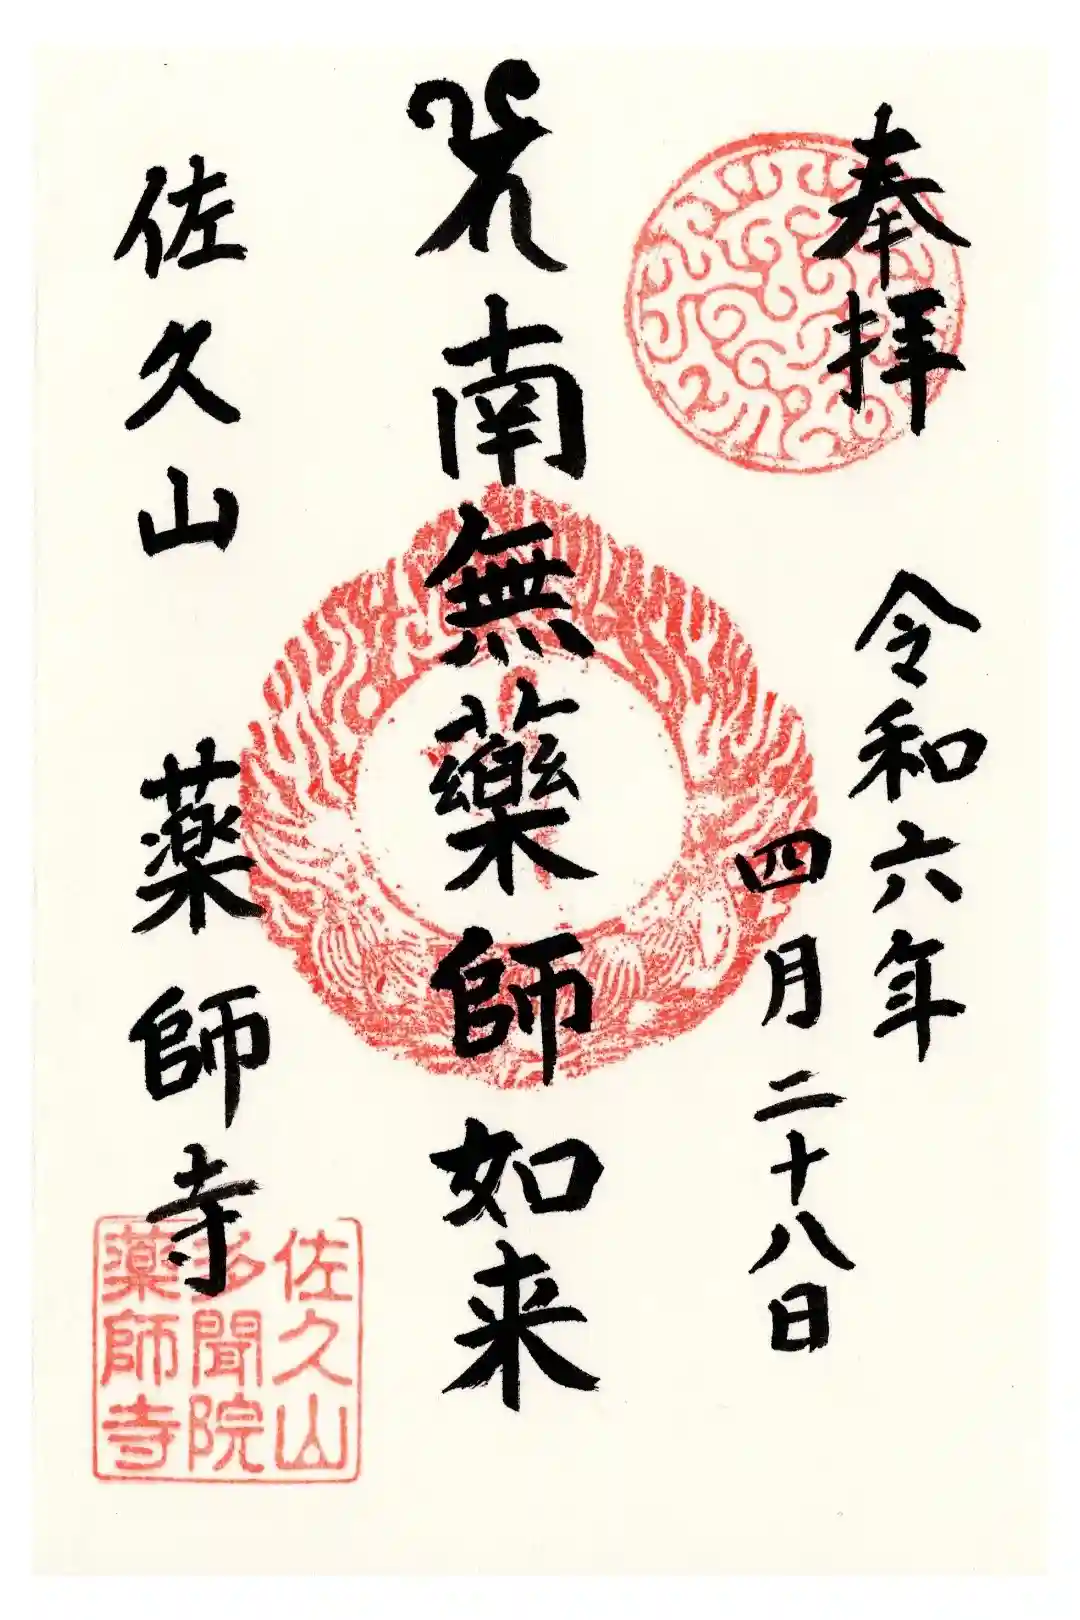 奉拝
令和六年
四月二十八日
南無藥師如来
佐久山 薬師寺
佐久山
多聞院
薬師寺